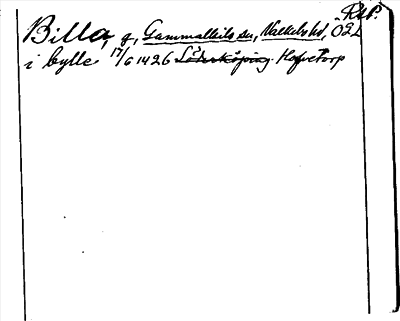 RAP.
Billa, g, Gammalkils sn, Valkebo hd, ÖGL
i bylle 17/6 1426 Söderköping Hofvetorp